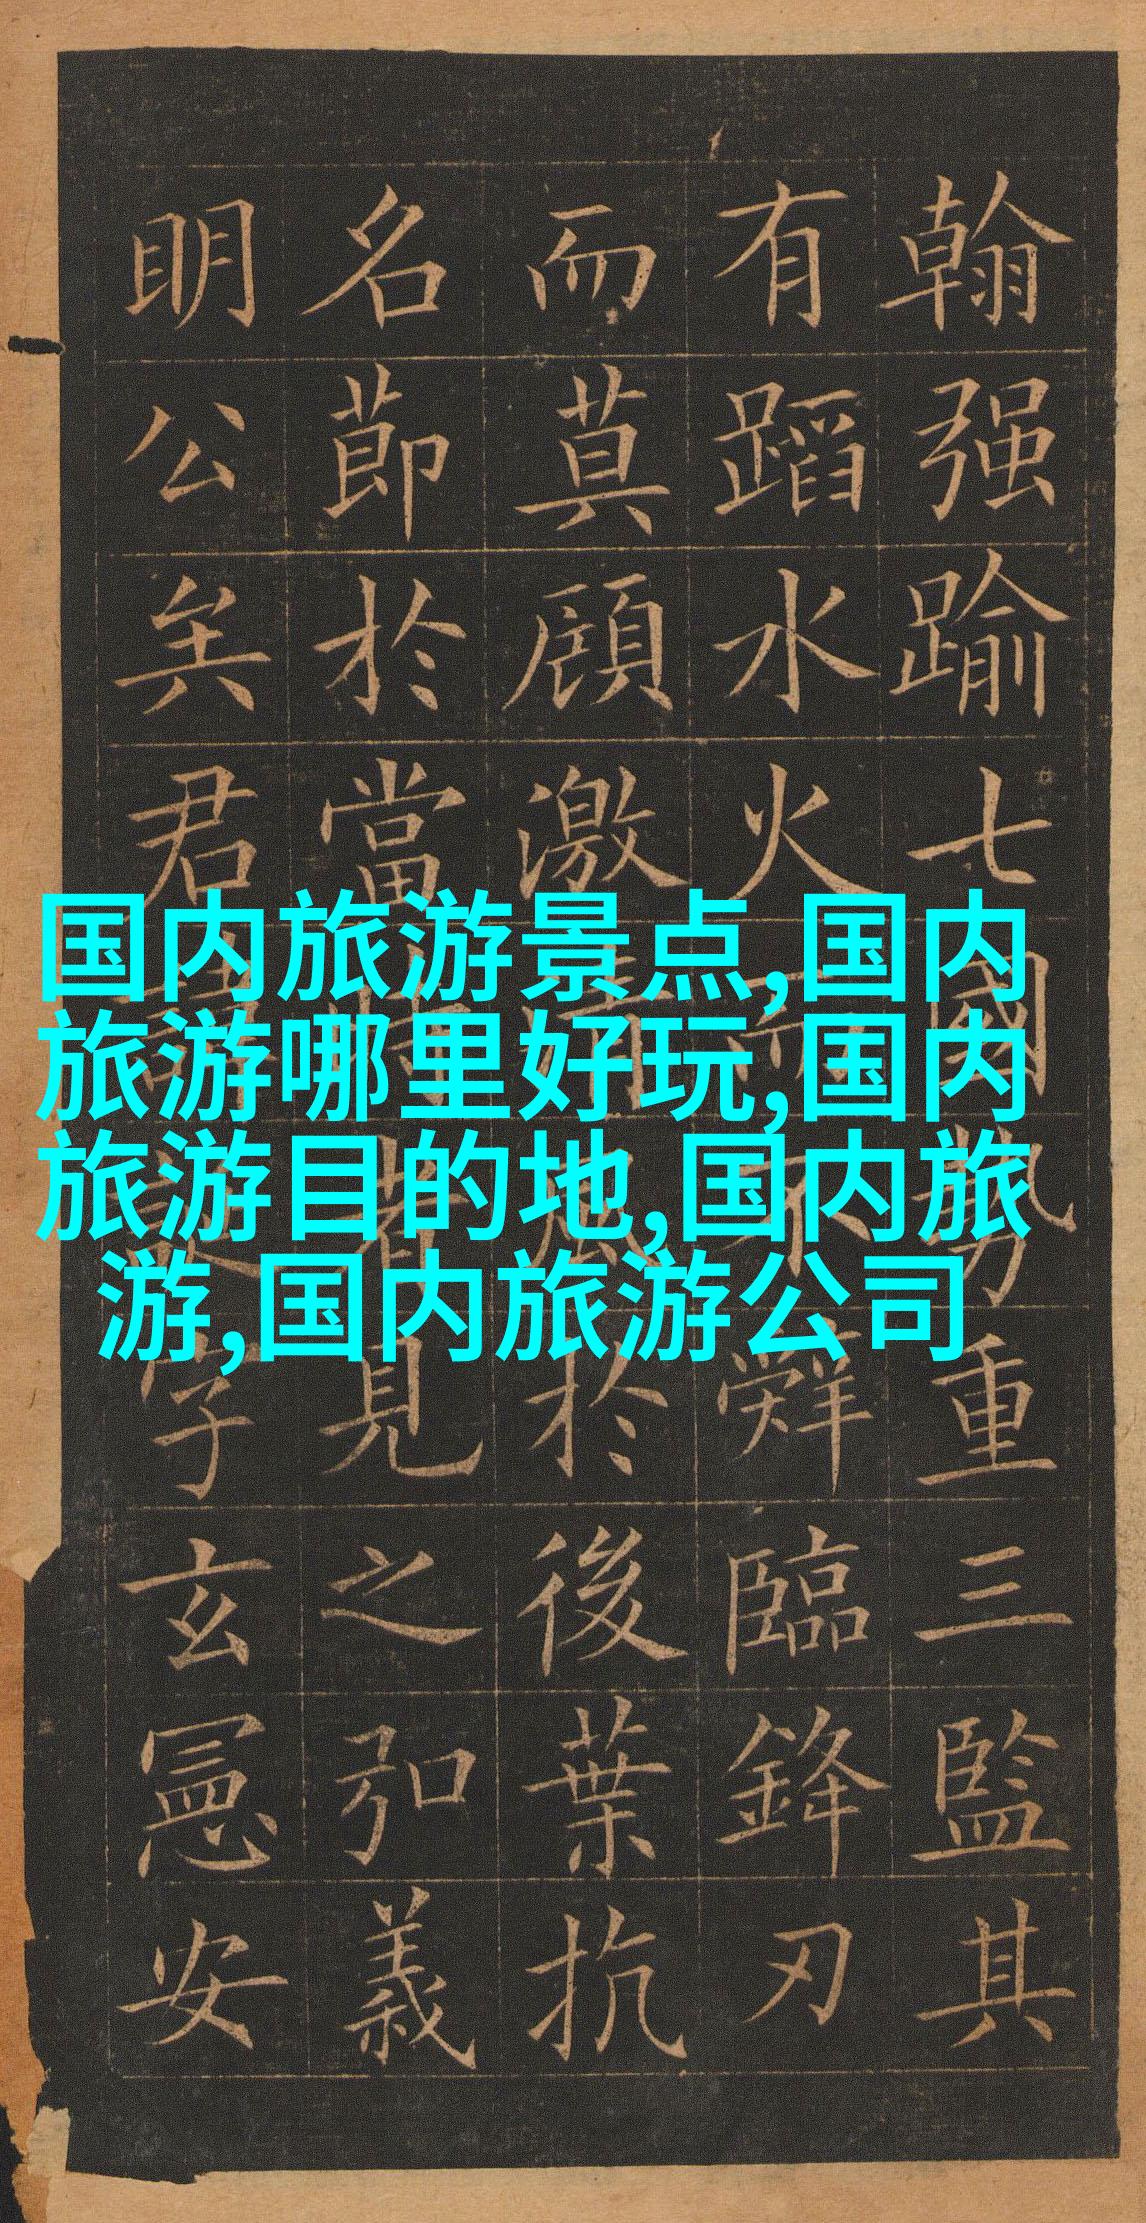 翰强踰七國勢重三監其
有蹈水火而不辤臨鋒刃
而莫顧激清風於後葉抗
名節於當時者見之弘義
明公矣君字玄憲安
国内旅游景点,国内
旅游哪里好玩,国内
旅游目的地,国内旅
游,国内旅游公司